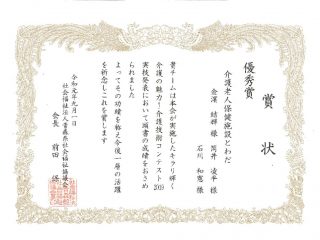 賞状
優秀賞
介護老人保健施設とわだ
金澤 結輝 様 筒井 凌平 様
石川 和寛 様
貴チームは本会が実施したキラリ輝く
介護の魅力!介護技術コンテスト2019
実技発表において頭書の成績をおさめ
られました
よってその功績を称え今後一層の活躍
を祈念しこれを賞します
令和元年九月一日
社会福祉法人青森県社会福祉協議会
会長 前田 保